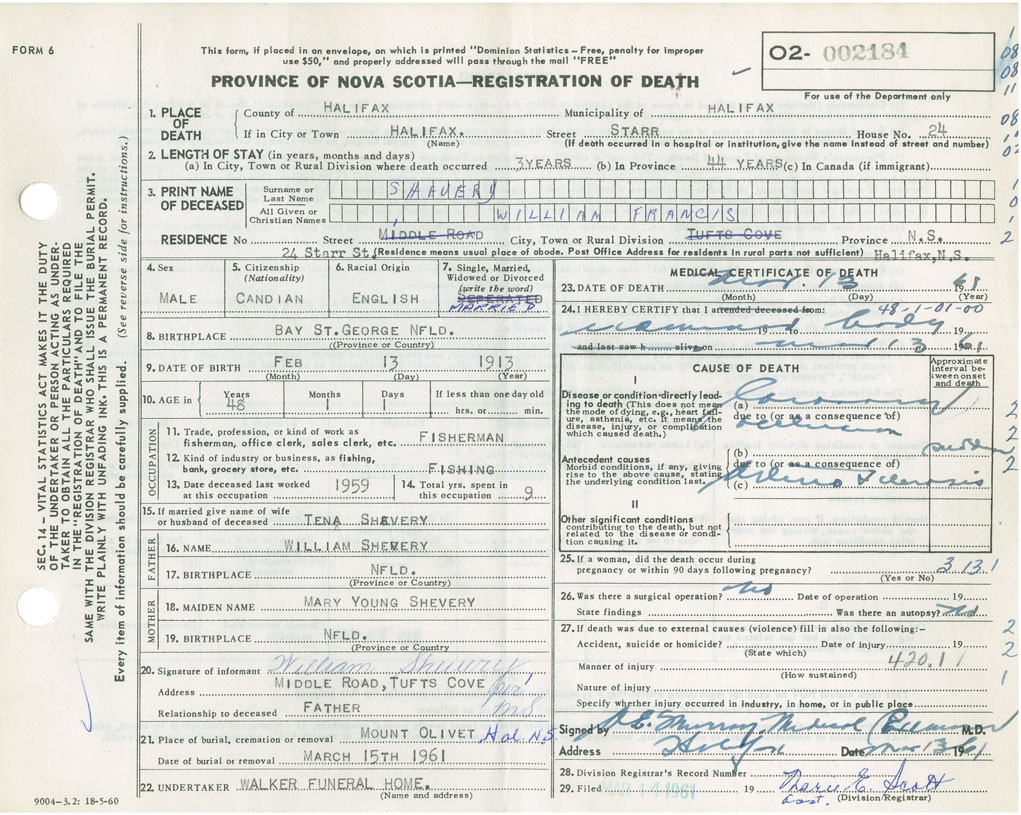 FORM 6
This form, if placed in an envelope, on which is printed "Dominion Statistics – Free, penalty for improper
use $50," and properly addressed will pass through the mail "FREE"
PROVINCE OF NOVA SCOTIA—REGISTRATION OF DEATH
O2- 002184
For use of the Department only
1. PLACE OF DEATH County of HALIFAX Municipality of HALIFAX
If in City or Town HALIFAX. Street STARR House No. 24
(Name) (If death occurred in a hospital or institution, give the name instead of street and number)
2. LENGTH OF STAY (in years, months and days)
(a) In City, Town or Rural Division where death occurred 3YEARS (b) In Province 44 YEARS (c) In Canada (if immigrant)
3. PRINT NAME OF DECEASED Surname or Last Name SHAVERY
All Given or Christian Names WILLIAM FRANCIS
RESIDENCE No Street MIDDLE ROAD City, Town or Rural Division TUFTS COVE Province N.S.
24 Starr St. (Residence means usual place of abode. Post Office Address for residents in rural parts not sufficient) Halifax, N.S.
4. Sex MALE
5. Citizenship (Nationality) CANDIAN
6. Racial Origin ENGLISH
7. Single, Married, Widowed or Divorced (write the word) SEPERATED MARRIED
8. BIRTHPLACE BAY ST.GEORGE NFLD.
(Province or Country)
9. DATE OF BIRTH FEB 13 1913
(Month) (Day) (Year)
10. AGE in Years 48 Months 1 Days 1 If less than one day old
hrs. or min.
OCCUPATION
11. Trade, profession, or kind of work as fisherman, office clerk, sales clerk, etc. FISHERMAN
12. Kind of industry or business, as fishing, bank, grocery store, etc. FISHING
13. Date deceased last worked at this occupation 1959
14. Total yrs. spent in this occupation 9
15. If married give name of wife or husband of deceased TENA SHEVERY
FATHER
16. NAME WILLIAM SHEVERY
17. BIRTHPLACE NFLD.
(Province or Country)
MOTHER
18. MAIDEN NAME MARY YOUNG SHEVERY
19. BIRTHPLACE NFLD.
(Province or Country)
20. Signature of informant William Shevery
Address MIDDLE ROAD, TUFTS COVE per MS
Relationship to deceased FATHER
21. Place of burial, cremation or removal MOUNT OLIVET Hal. N.S.
Date of burial or removal MARCH 15TH 1961
22. UNDERTAKER WALKER FUNERAL HOME.
(Name and address)
9004-3.2: 18-5-60
MEDICAL CERTIFICATE OF DEATH
23. DATE OF DEATH Mar. 13 1961
(Month) (Day) (Year)
24. I HEREBY CERTIFY that I attended deceased from: 48-1-01-00
examined 19 to body 19
and last saw h alive on Mar 13 1961
CAUSE OF DEATH
Approximate interval between onset and death
I
Disease or condition directly leading to death (This does not mean the mode of dying, e.g., heart failure, asthenia, etc. It means the disease, injury, or complication which caused death.)
(a) Coronary
due to (or as a consequence of)
(b) sudden
Antecedent causes
Morbid conditions, if any, giving rise to the above cause, stating the underlying condition last.
due to (or as a consequence of)
(c) Arterio Sclerosis
II
Other significant conditions
contributing to the death, but not related to the disease or condition causing it.
25. If a woman, did the death occur during pregnancy or within 90 days following pregnancy? 3.13.1
(Yes or No)
26. Was there a surgical operation? No Date of operation 19
State findings Was there an autopsy? No
27. If death was due to external causes (violence) fill in also the following:–
Accident, suicide or homicide? Date of injury 19
(State which)
Manner of injury 420.1
(How sustained)
Nature of injury
Specify whether injury occurred in industry, in home, or in public place
Signed by Murray Medical Examiner M.D.
Address Halifax Date Mar 13 1961
28. Division Registrar's Record Number
29. Filed MAR 14 1961 19 Marie E. Scott
Asst. (Division Registrar)
SEC. 14 – VITAL STATISTICS ACT MAKES IT THE DUTY
OF THE UNDERTAKER OR PERSON ACTING AS UNDER-
TAKER TO OBTAIN ALL THE PARTICULARS REQUIRED
IN THE "REGISTRATION OF DEATH" AND TO FILE THE
SAME WITH THE DIVISION REGISTRAR WHO SHALL ISSUE THE BURIAL PERMIT.
WRITE PLAINLY WITH UNFADING INK. THIS IS A PERMANENT RECORD.
Every item of information should be carefully supplied. (See reverse side for instructions.)